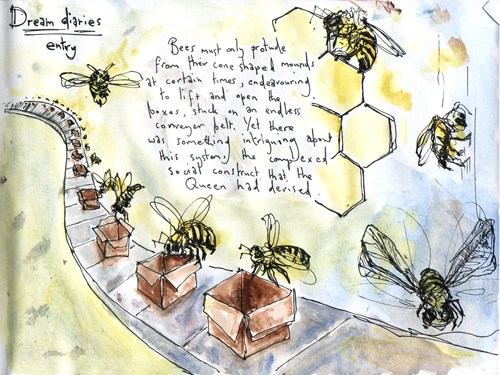 Dream diaries
entry
Bees must only protrude
from their cone shaped mounds
at certain times, endeavouring
to lift and open the
boxes, stuck on an endless
conveyor belt. Yet there
was something intriguing about
this system; the complexed
social construct that the
Queen had devised.